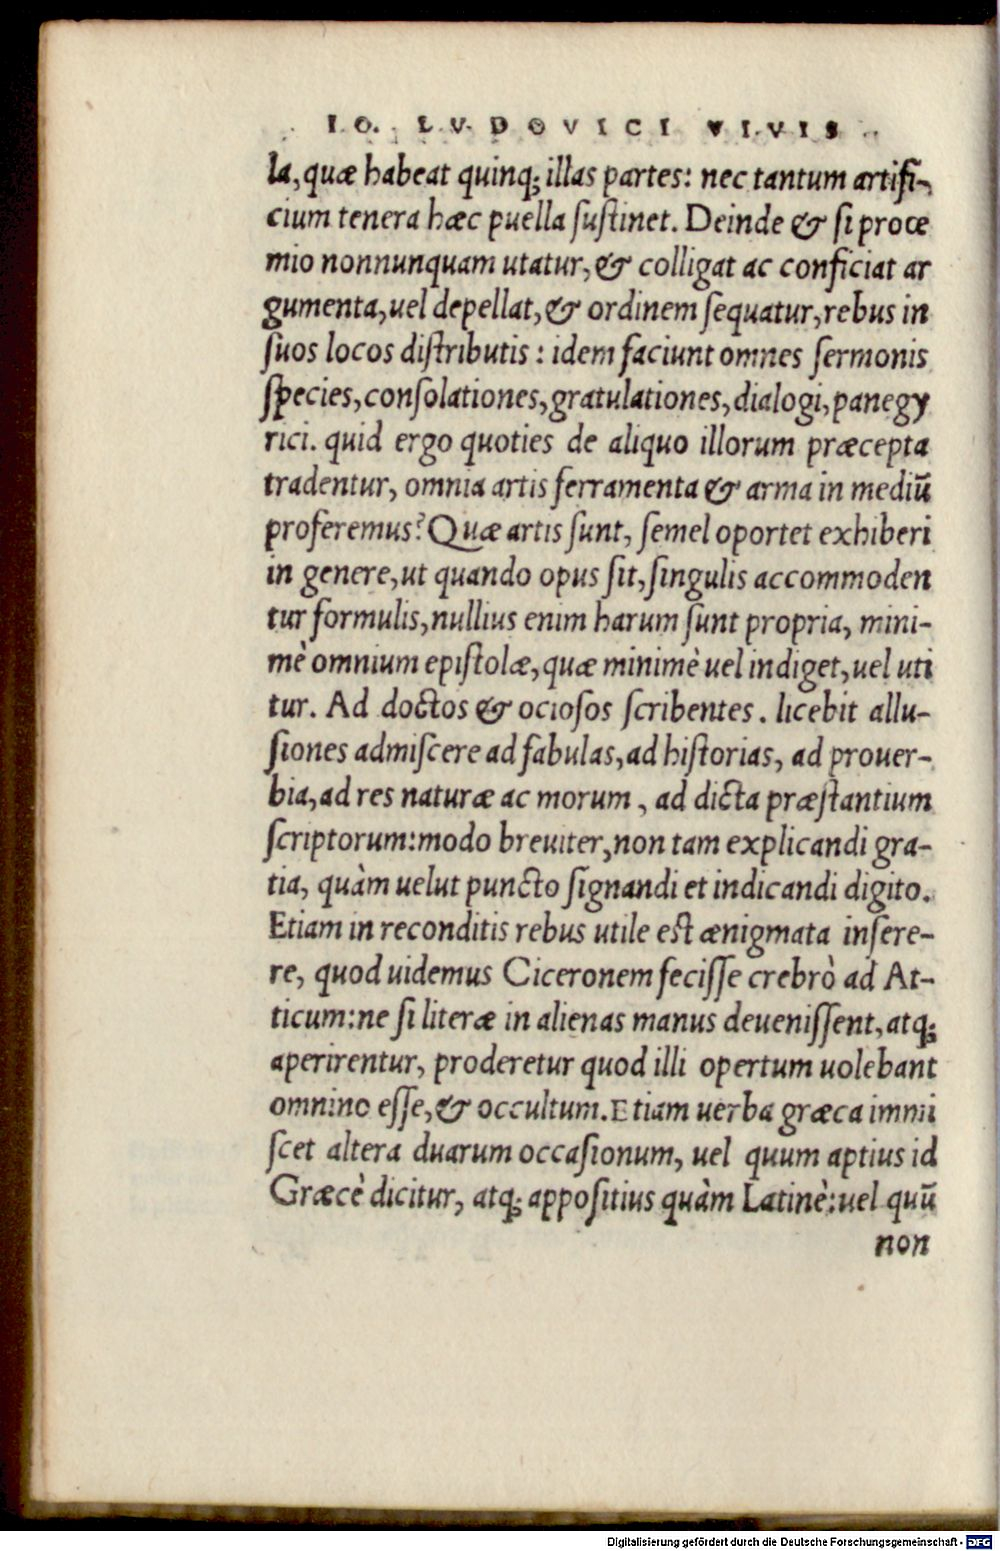 IO. LVDOVICI VIVIS
la, quæ habeat quinq; illas partes: nec tantum artifi-
cium tenera hæc puella ſuſtinet. Deinde & ſi procœ
mio nonnunquam utatur, & colligat ac conficiat ar
gumenta, uel depellat, & ordinem ſequatur, rebus in
ſuos locos diſtributis: idem faciunt omnes ſermonis
ſpecies, conſolationes, gratulationes, dialogi, panegy
rici. quid ergo quoties de aliquo illorum præcepta
tradentur, omnia artis ferramenta & arma in mediũ
proferemus? Quæ artis ſunt, ſemel oportet exhiberi
in genere, ut quando opus ſit, ſingulis accommoden
tur formulis, nullius enim harum ſunt propria, mini-
mè omnium epiſtolæ, quæ minimè uel indiget, uel uti
tur. Ad doctos & ocioſos ſcribentes. licebit allu-
ſiones admiſcere ad fabulas, ad hiſtorias, ad prouer-
bia, ad res naturæ ac morum, ad dicta præſtantium
ſcriptorum: modo breuiter, non tam explicandi gra-
tia, quàm uelut puncto ſignandi et indicandi digito.
Etiam in reconditis rebus utile est ænigmata inſere-
re, quod uidemus Ciceronem feciſſe crebrò ad At-
ticum: ne ſi literæ in alienas manus deueniſſent, atq;
aperirentur, proderetur quod illi opertum uolebant
omnino eſſe, & occultum. Etiam uerba græca immi
ſcet altera duarum occaſionum, uel quum aptius id
Græcè dicitur, atq; appoſitius quàm Latinè: uel quũ
non
Digitalisierung gefördert durch die Deutsche Forschungsgemeinschaft - DFG